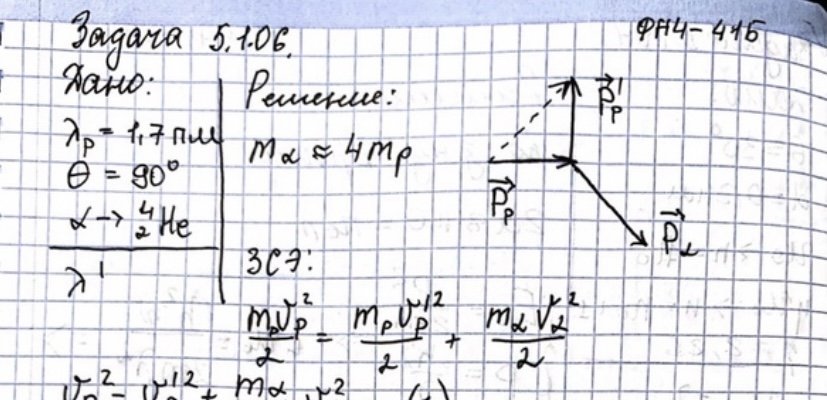 Задача 5.1.06.
ФН4-41Б
Дано:
λp = 1,7 пм
θ = 90°
α → ⁴₂He
λ'
Решение:
mα ≈ 4mp
P⃗p'
P⃗p
P⃗α
ЗСЭ:
mpVp²/2 = mpVp'²/2 + mαVα²/2
Vp² = Vp'² + mα